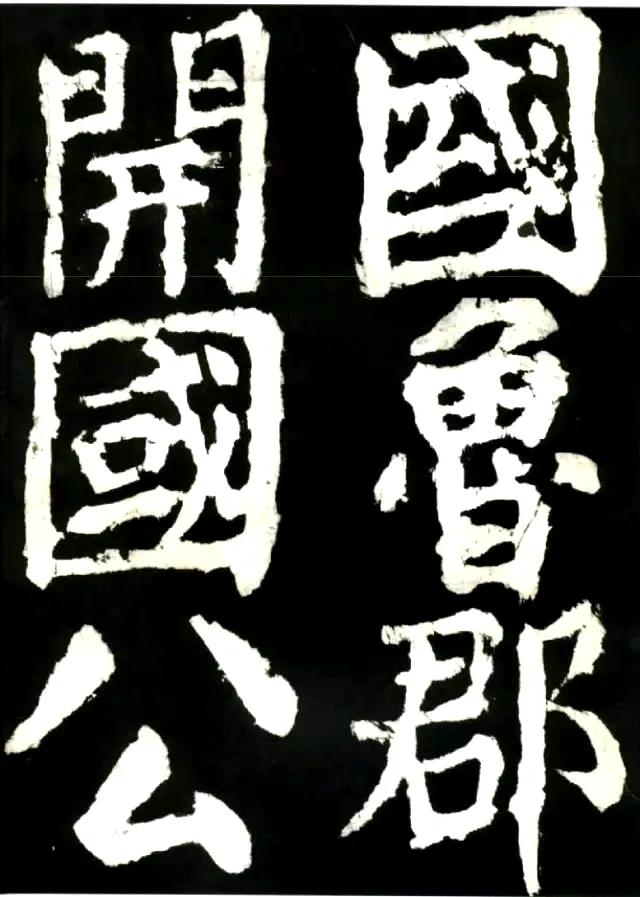 國魯郡
開國公